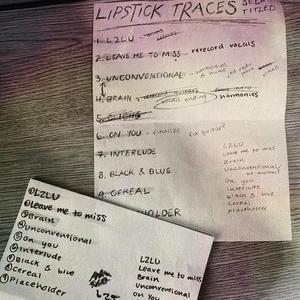 LIPSTICK TRACES SELF TITLED
1. LZLU
2. LEAVE ME TO MISS - rerecord vocals
3. UNCONVENTIONAL - harmonies
4. BRAIN - vocals ending harmonies
5. CLICHE
6. ON YOU - finalize guitar?
7. INTERLUDE
8. BLACK & BLUE
9. CEREAL
HOLDER
LZLU
Leave me to miss
Brain
Unconventional
On you
Interlude
black & blue
cereal
placeholder
① LZLU
② Leave me to miss
③ Brain
④ Unconventional
⑤ On you
⑥ Interlude
⑦ Black & blue
⑧ Cereal
⑨ Placeholder
LZLU
Leave me to miss
Brain
Unconventional
on you
LZT